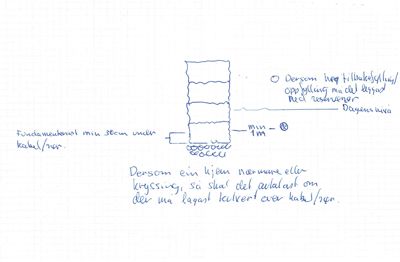 Dersom høg tilbakefylling/
oppfylling må det lagast
med
Dagens nivå
min
1m
Fundamentnivå min 30cm under
kabel/rør.
Dersom ein kjem nærmare eller
kryssing, så skal det avtalast om
det må lagast kulvert over kabel/rør.